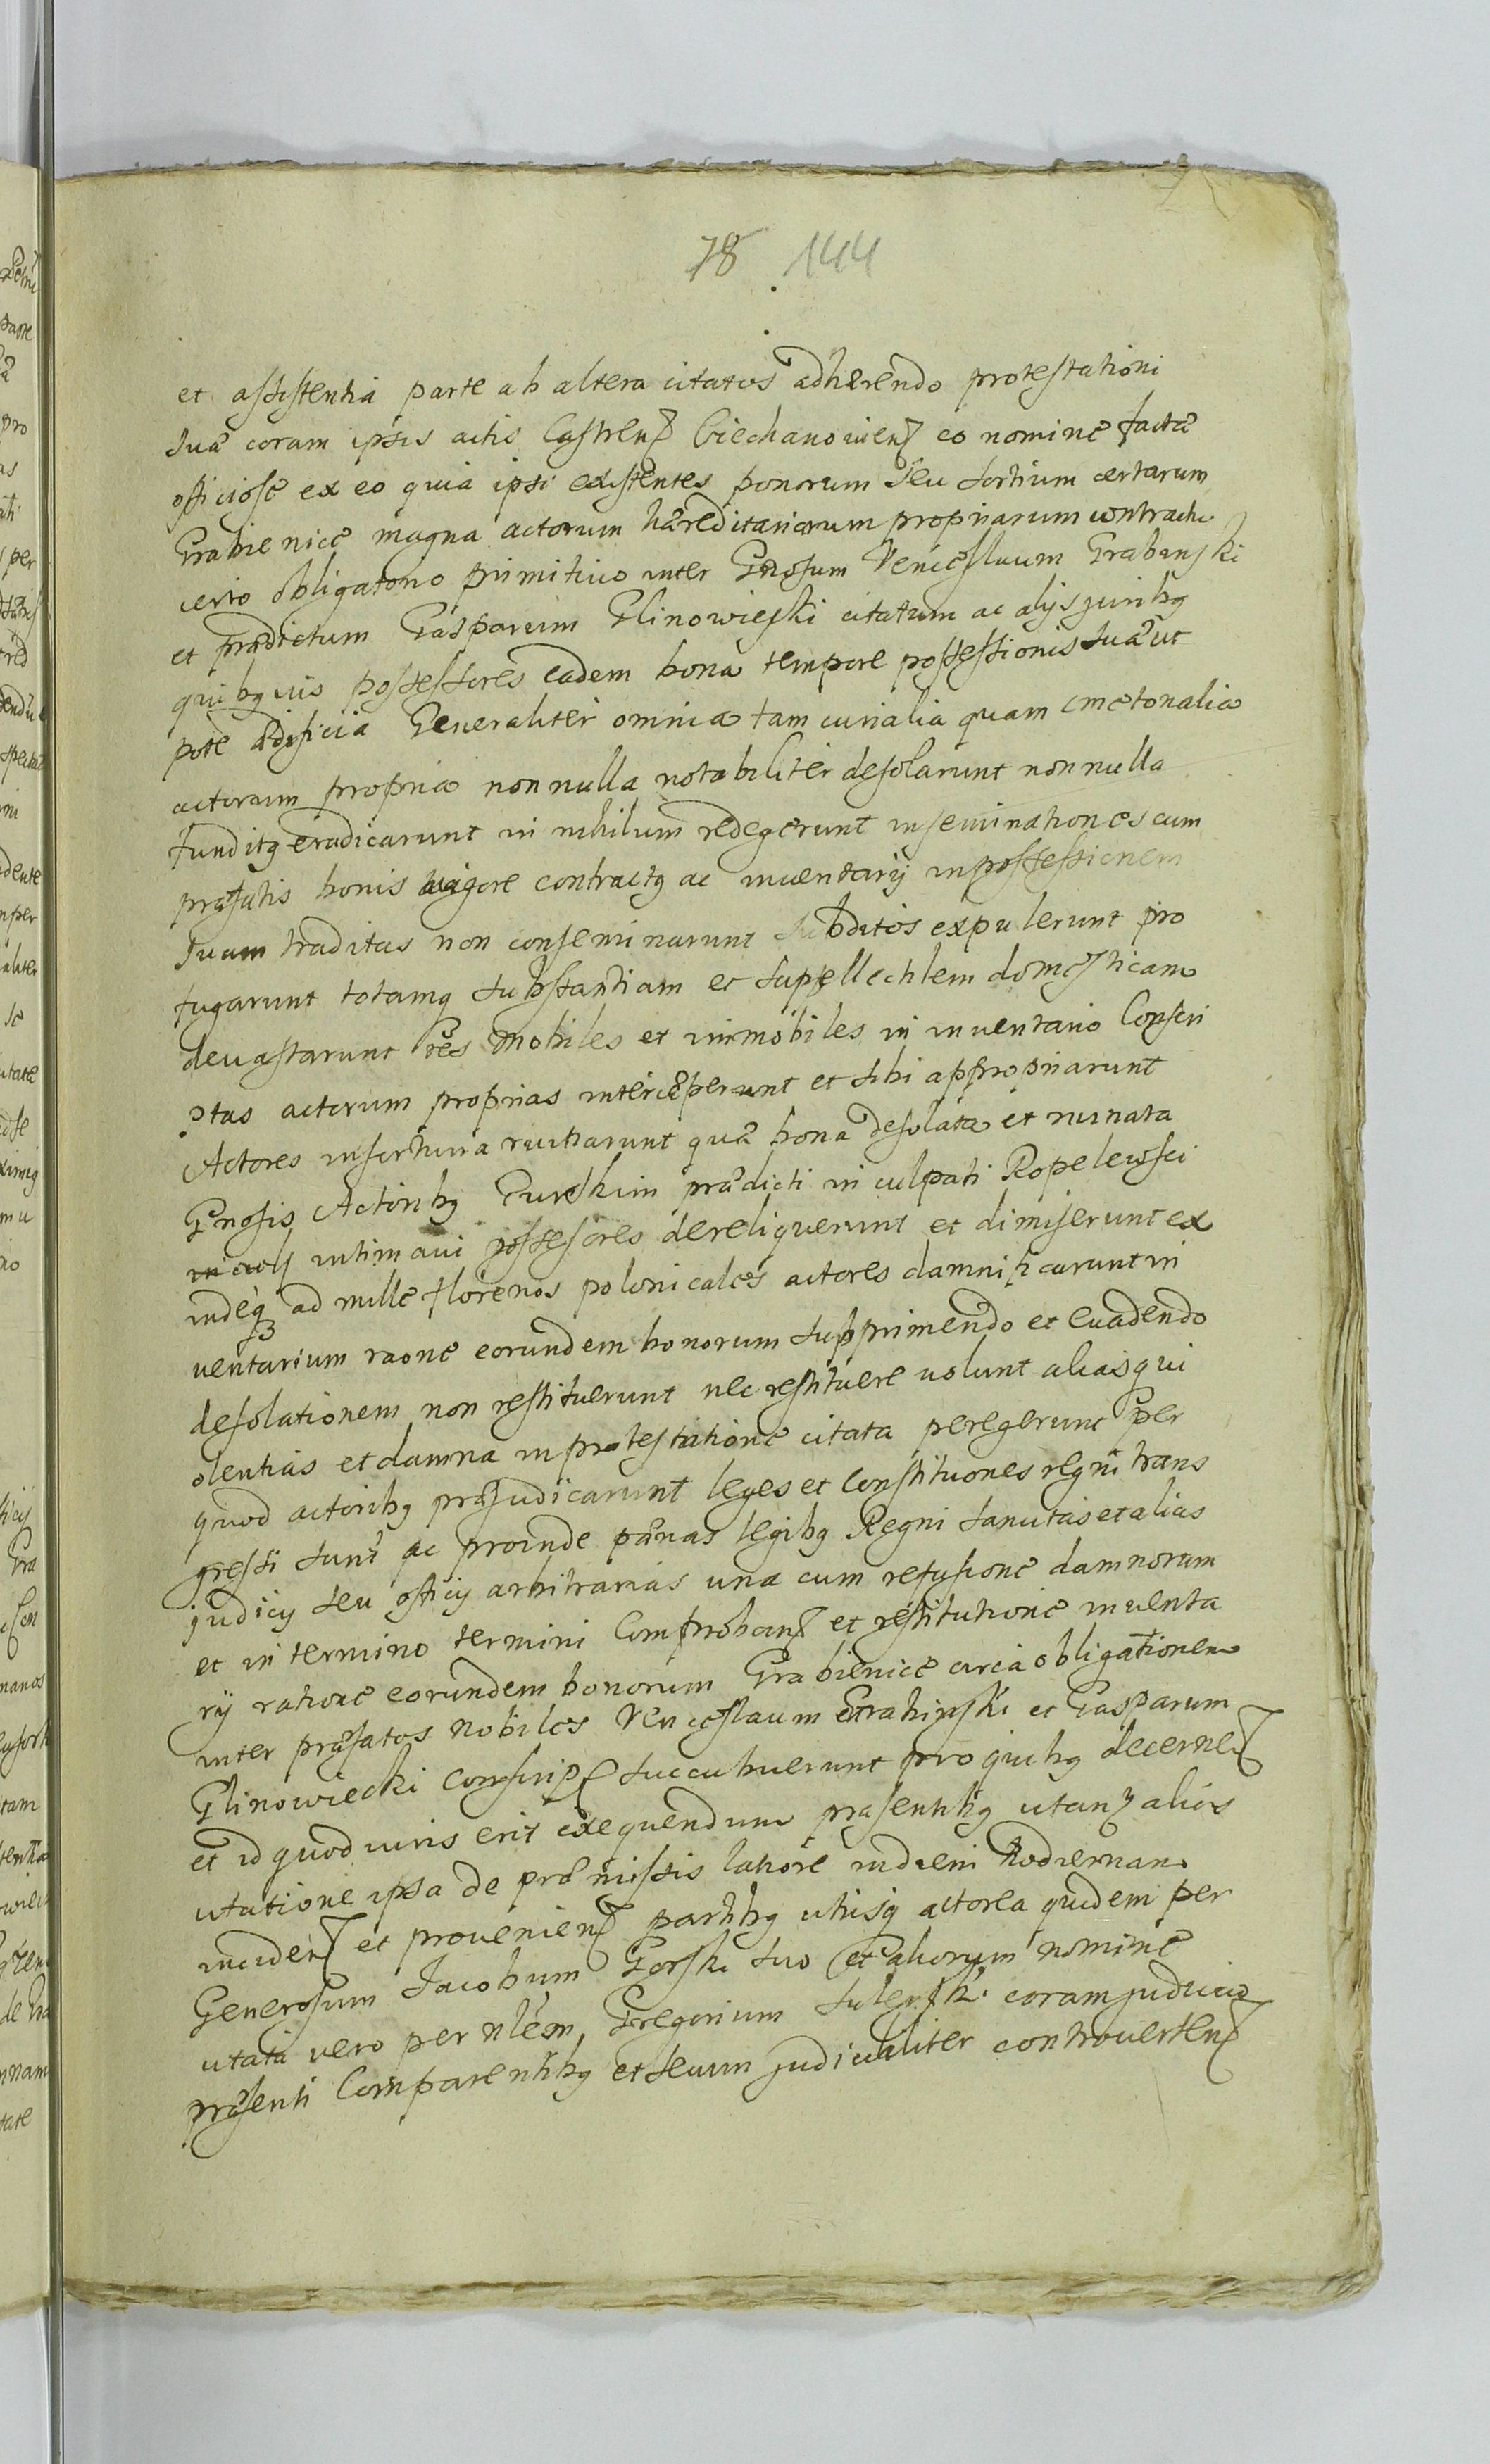 78 144
et assistentia parte ab altera citatos adhærendo protestationi
suæ coram ipsis actis Castrens Ciechanouiens eo nomine factæ
officiose ex eo quia ipsi existentes bonorum seu sortium certarum
Grabienice magna actorum hæreditariarum propriarum contractu
vero obligatorio primitiuo inter Gnosum Venceslaum Grabinski
et prædictum Gasparum Glinowieski citatum ac alijs juribq
quibqvis possessores eadem bona tempore possessionis suæ ut
pote ædificia Generaliter omnia tam curialia quam cmetonalia
actorum propria non nulla notabiliter desolarunt non nulla
funditq eradicarunt in nihilum redegerunt inseminationes cum
præfatis bonis vigore contractq ac inuentarij in possessionem
suam traditas non conseminarunt subditos expulerunt pro
fugarunt totamq substantiam et suppellectilem domesticam
deuastarunt res mobiles et immobiles in inuentario Conscri
ptas actorum proprias interceperunt et sibi appropriarunt
Actores infortunia quæ bona desolata et ruinata
Gnosis Actoribq Gurskim prædicti inculpati Ropelewsci
intimaui possessores dereliquerunt et dimiserunt ex
indeq ad mille florenos polonicales actores damnificarunt in
uentarium raone eorundem bonorum supprimendo et euadendo
desolationem non restituerunt nec restituere uolunt aliasq vi
olentias et damna in protestatione citata peregerunt per
quod actoribq præjudicarunt leges et Constituones regni trans
gressi sunt ac proinde pænas legibq Regni sancitas et alias
judicij seu officij arbitrarias una cum refusione damnorum
et in termino termini Comprobans et restitutione inuenta
rij ratione eorundem bonorum Grabienice circa obligationem
inter præfatos Nobiles Venceslaum Grabinski et Gasparum
Glinowiecki conscrips succubuerunt pro quibq decernes
et id quod iuris erit exequendum præsentibq citans alios
citatione ipsa de præmissis latiore in diem hodiernam
incidens et proueniens partibq utrisq actorea quidem per
Generosum Jacobum Gorski suo et aliorum nomine
citata vero per nlem Gregorium coram judicio
præsenti Comparentibq et secum judicialiter controuertens